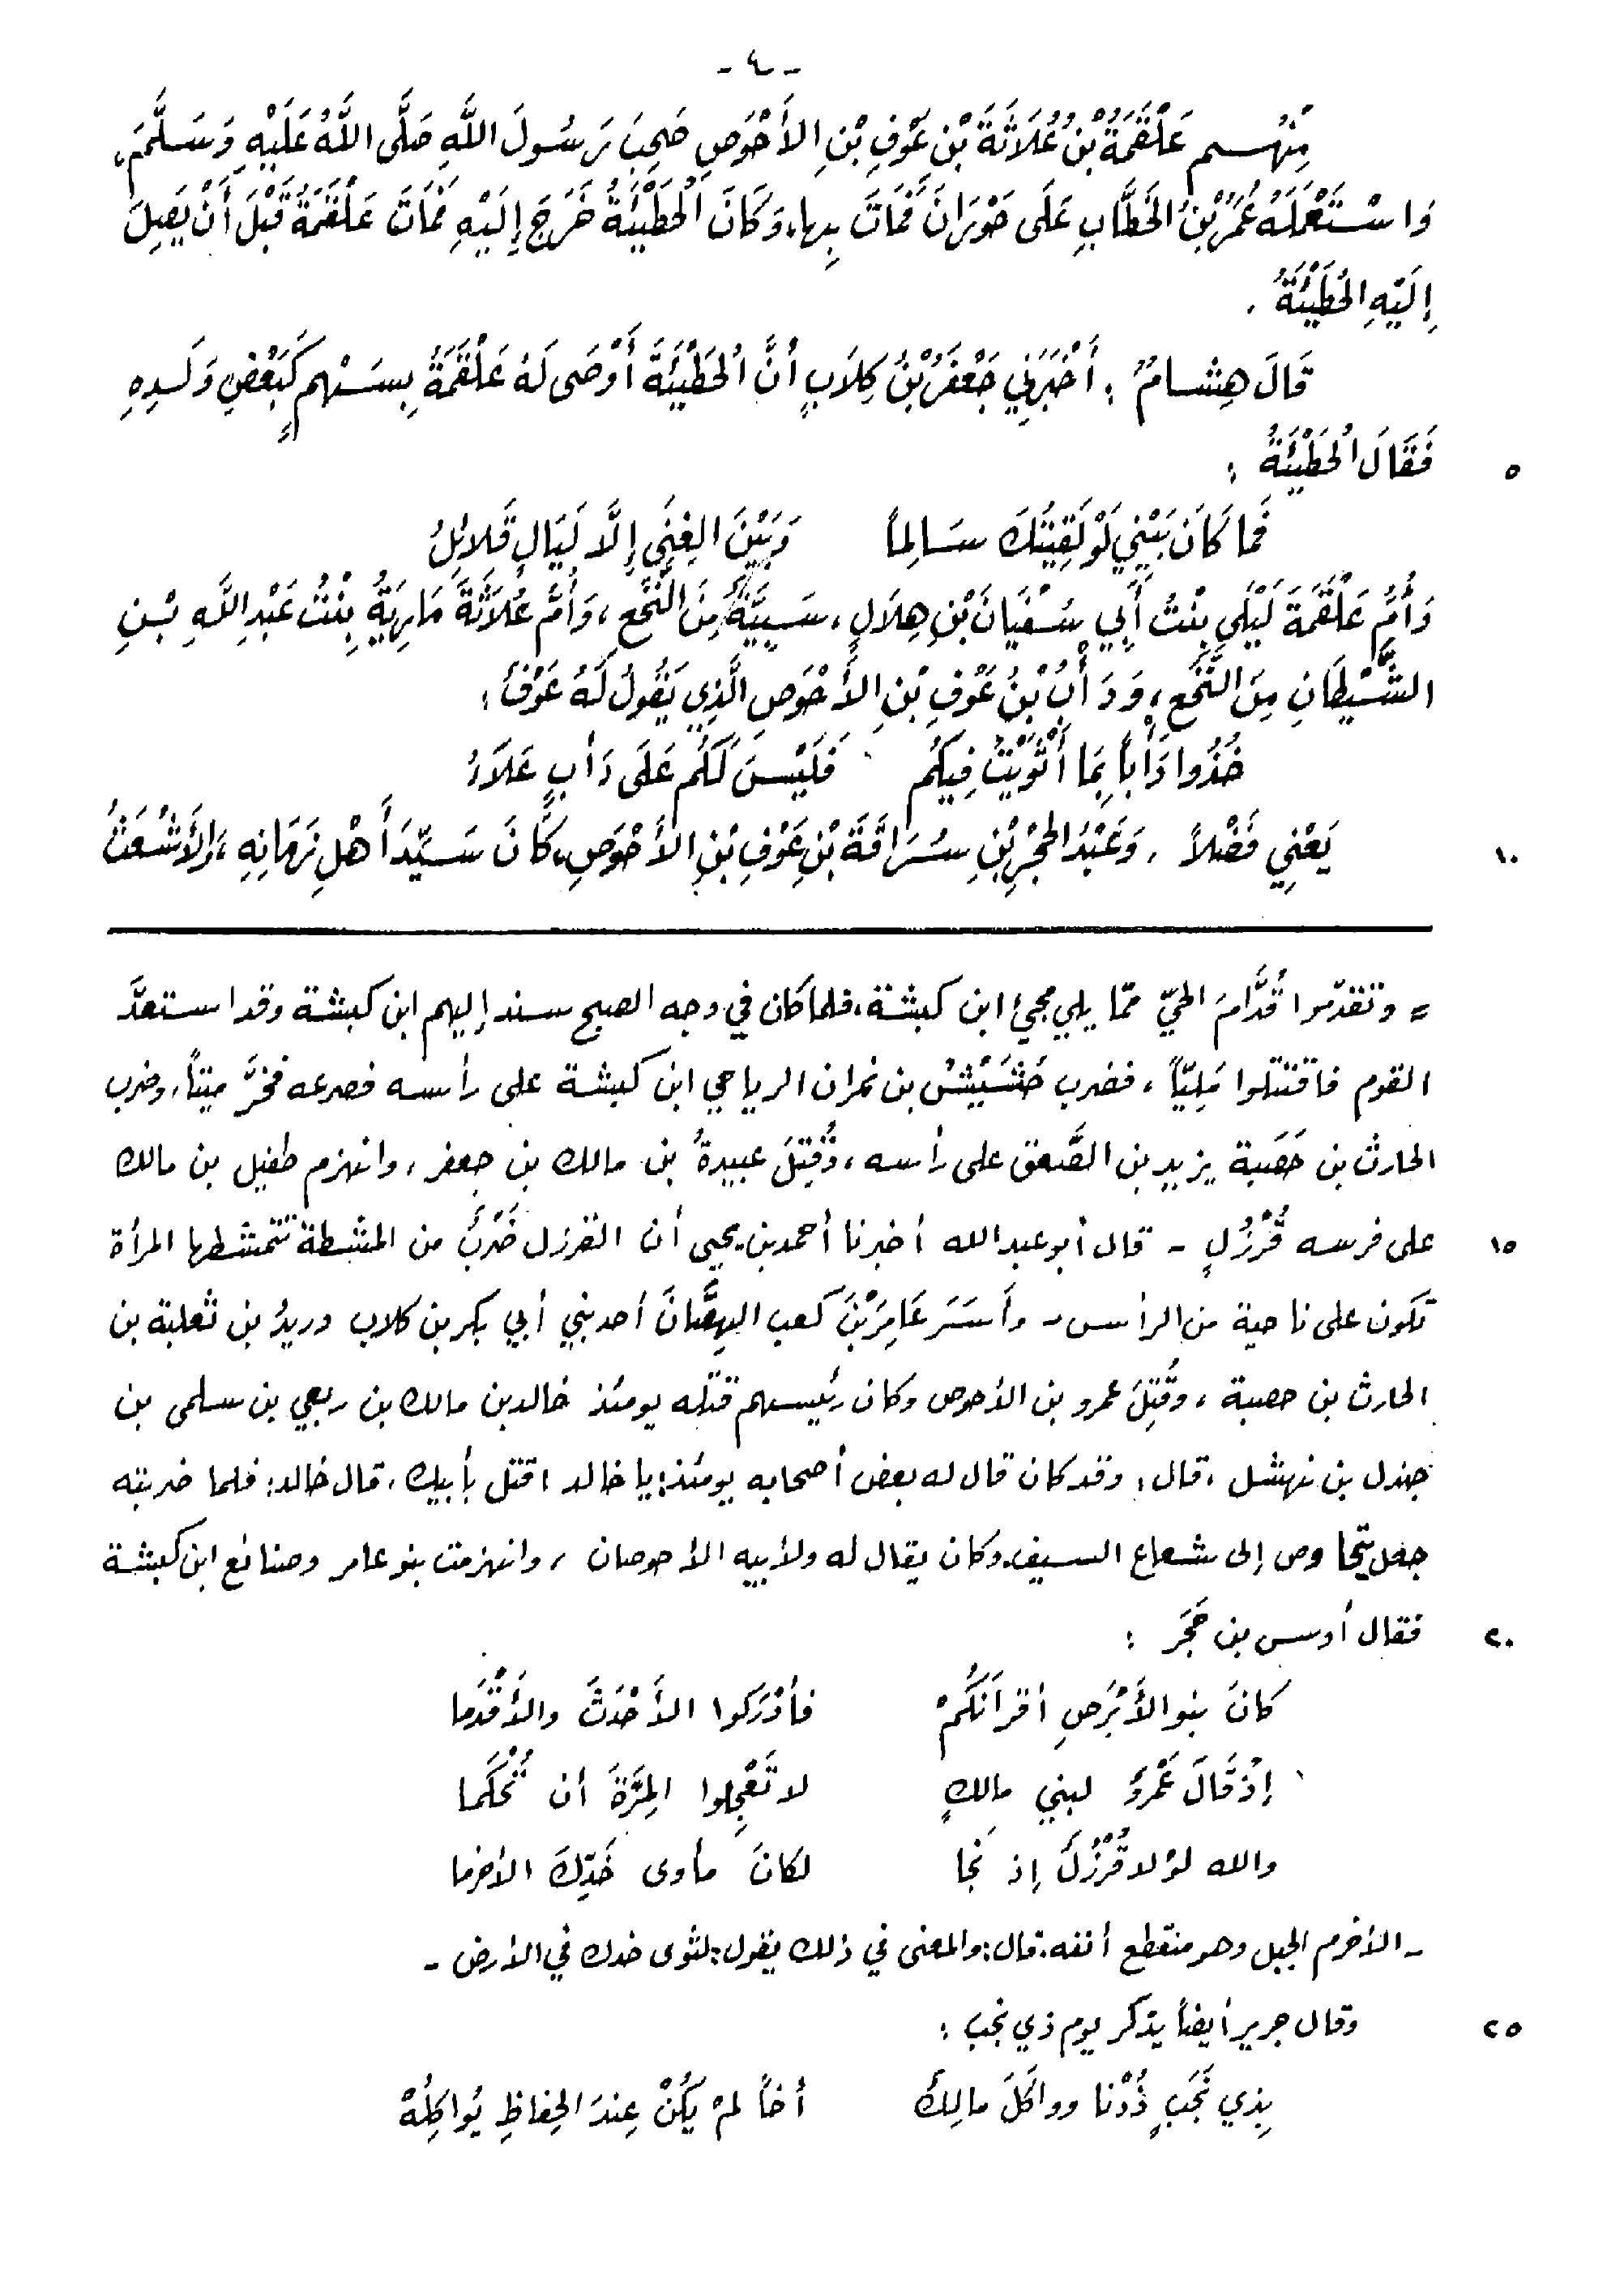 - ٤ -
مِنْهُم عَلْقَمَةُ بْنُ عُلَاثَةَ بْنِ عَوْفِ بْنِ الأَحْوَصِ صَحِبَ رَسُولَ اللَّهِ صَلَّى اللَّهُ عَلَيْهِ وَسَلَّمَ،
وَاسْتَعْمَلَهُ عُمَرُ بْنُ الخَطَّابِ عَلَى حَوْرَانَ فَمَاتَ بِهَا، وَكَانَ الحُطَيْئَةُ خَرَجَ إِلَيْهِ فَمَاتَ عَلْقَمَةُ قَبْلَ أَنْ يَصِلَ
إِلَيْهِ الحُطَيْئَةُ .
قَالَ هِشَامٌ : أَخْبَرَنِي جَعْفَرُ بْنُ كِلَابٍ أَنَّ الحُطَيْئَةَ أَوْصَى لَهُ عَلْقَمَةُ بِسَهْمٍ كَبَعْضِ وَلَدِهِ
٥ فَقَالَ الحُطَيْئَةُ :
فَمَا كَانَ بَيْنِي لَوْ لَقِيتُكَ سَالِماً وَبَيْنَ الغِنَى إِلَّا لَيَالٍ قَلَائِلُ
وَأُمُّ عَلْقَمَةَ لَيْلَى بِنْتُ أَبِي سُفْيَانَ بْنِ هِلَالٍ، سَبِيَّةٌ مِنَ النَّخَعِ، وَأُمُّ عُلَاثَةَ مَارِيَةُ بِنْتُ عَبْدِ اللَّهِ بْنِ
الشَّيْطَانِ مِنَ النَّخَعِ، وَدَأْبُ بْنُ عَوْفِ بْنِ الأَحْوَصِ الَّذِي يَقُولُ لَهُ عَوْفٌ :
خُذُوا دَأْباً بِمَا أَثْوَيْتُ فِيكُم فَلَيْسَ لَكُم عَلَى دَأْبٍ عَلَاءُ
١٠ يَعْنِي فَضْلاً . وَعَبْدُ الحِجْرِ بْنِ سُرَاقَةَ بْنِ عَوْفِ بْنِ الأَحْوَصِ، كَانَ سَيِّدَ أَهْلِ زَمَانِهِ، وَالأَشْعَثُ
= وتقدّموا قُدَّامَ الحيّ ممّا يلي مجيء ابن كبشة، فلما كان في وجه الصبح سند إليهم ابن كبشة وقد استعدَّ
القوم فاقتتلوا مَلِيّاً، فضرب حُشَيْشُ بن نمران الرياحي ابن كبشة على رأسه فصرعه فخرَّ ميتاً، وضرب
الحارثُ بن حَصَبة يزيد بن الصَّعق على رأسه، وقُتِلَ عبيدةُ بن مالك بن جعفر، وانهزم طفيل بن مالك
١٥ على فرسه قُرْزُلٍ - قال أبو عبد الله أخبرنا أحمد بن يحيى أن القرزل ضَرْبٌ من المشطة تتمشطها المرأة
تكون على ناحية من الرأس - وأَسَرَ عَامِرَ بْنَ كعب البهصَّانَ أحد بني أبي بكر بن كلاب دريدُ بن ثعلبة بن
الحارث بن حصبة، وقُتِلَ عمرو بن الأحوص وكان رئيسهم قتله يومئذ خالد بن مالك بن ربعي بن سلمى بن
جندل بن نهشل، قال: وقد كان قال له بعض أصحابه يومئذ: يا خالد اقتل بأبيك، قال خالد: فلما ضربته
جعل يتخاوص إلى شعاع السيف، وكان يقال له ولأبيه الأحوصان، وانهزمت بنو عامر وصنائع ابن كبشة
٢٠ فقال أوس بن حَجَر :
كانَ بنو الأَبْرَصِ أقرانَكُمْ فأدْرَكوا الأَحْدَثَ والأَقْدَما
إذْ قَالَ عَمْرٌو لبني مالكٍ لا تَعْجِلوا المِرَّةَ أن تُحْكَما
والله لوْلا قُرْزُلٌ إذ نَجَا لكانَ مأوى خَدِّكَ الأخرما
- الأخرم الجبل وهو منقطع أنفه. قال: والمعنى في ذلك يقول: لثوى خدك في الأرض -
٢٥ وقال جرير أيضاً يذكر يوم ذي نجب :
بِذي نَجَبٍ ذُدْنا وواكَلَ مالِكٌ أخاً لمْ يَكُنْ عِندَ الحِفاظِ يُواكِلُهْ